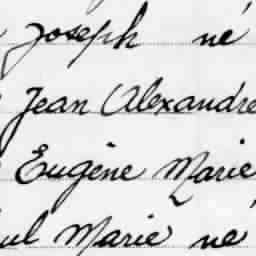 Joseph né
Jean Alexandre
Eugène Marie
ul Marie né